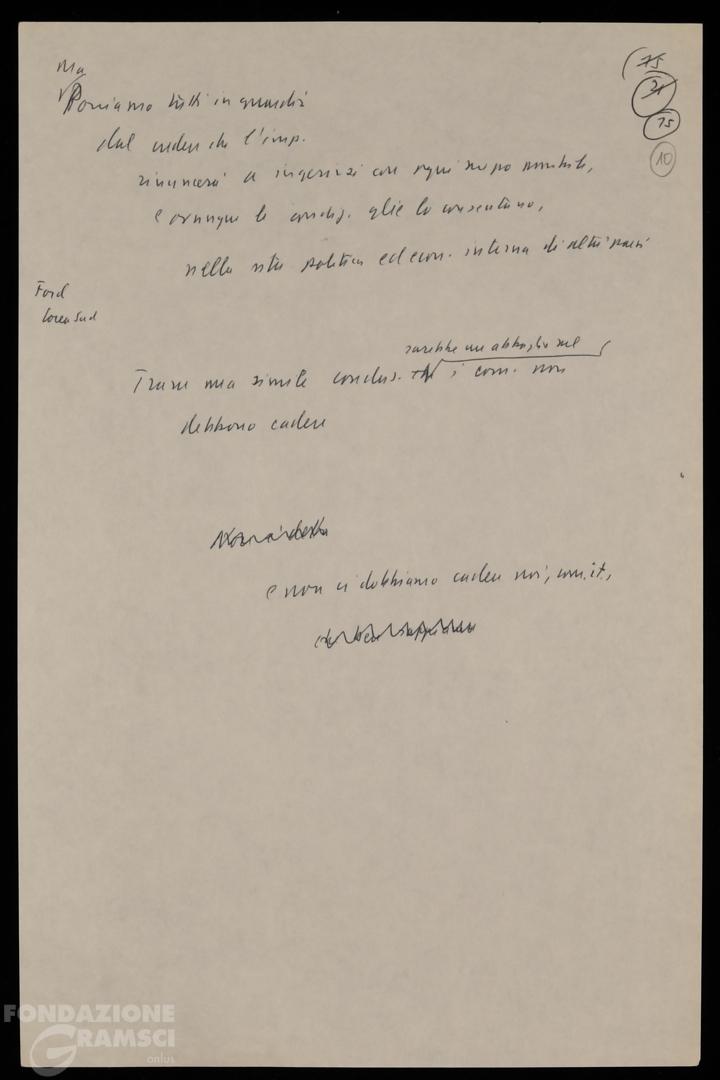 Ma
Poniamo tutti in guardia
dal creder che l'imp.
rinuncerà a ingerirsi con ogni mezzo possibile,
e ovunque le condiz. glie lo consentano,
nella vita politica ed econ. interna di altri paesi
Ford
Corea Sud
sarebbe un abbaglio nel
Trarre una simile conclus. i com. non
debbono cadere
e non ci dobbiamo cadere noi, com. it.,
75
15
10
FONDAZIONE
GRAMSCI
onlus